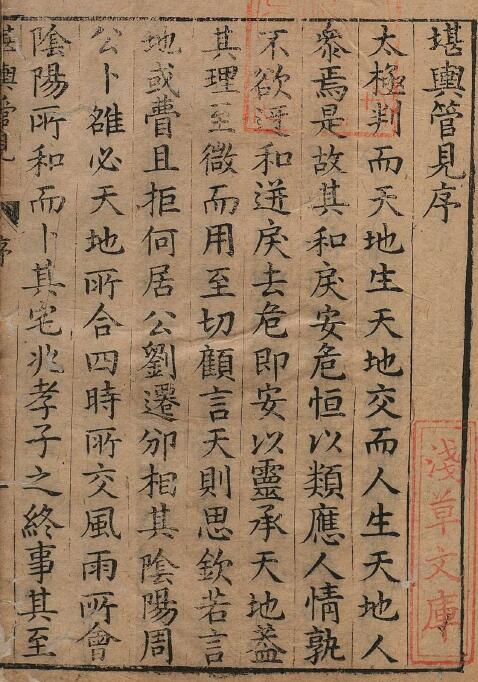 堪輿管見序
太極判而天地生天地交而人生天地人
叅焉是故其和戾安危恒以類應人情孰
不欲迓和迸戾去危即安以靈承天地葢
其理至微而用至切顧言天則思欽若言
地或費且拒何居公劉遷邠相其陰陽周
公卜雒必天地所合四時所交風雨所會
陰陽所和而卜其宅兆孝子之終事其至
堪輿管見
序
淺草文庫